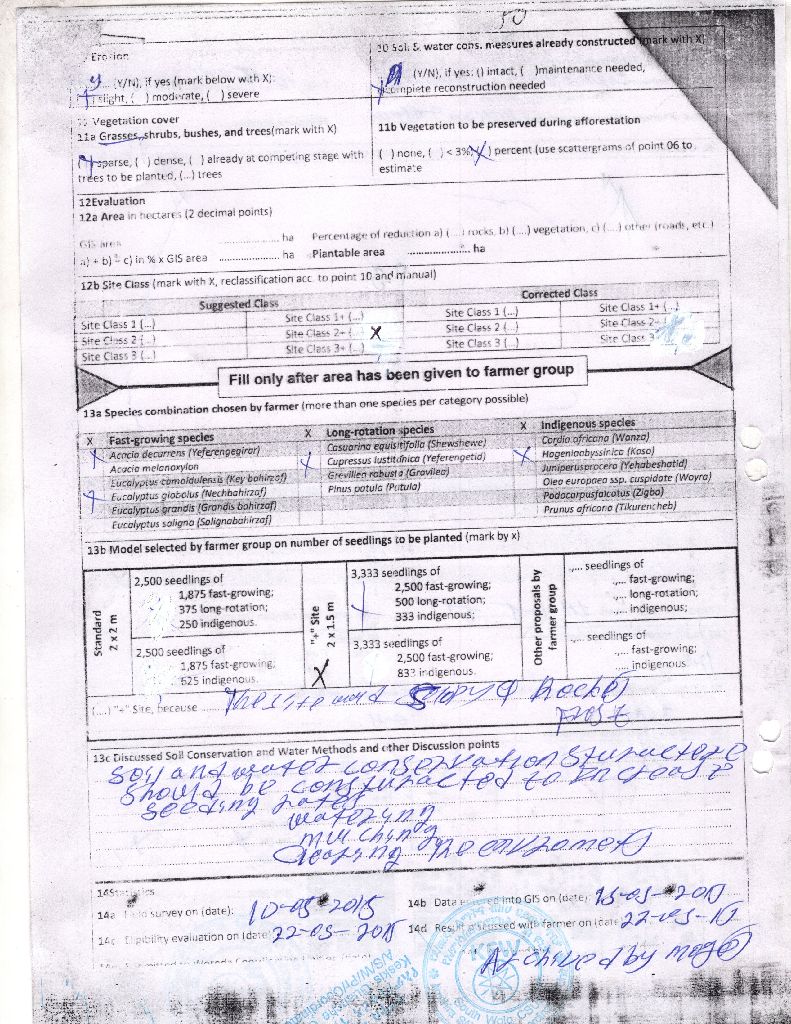 50
Erosion
10 Soil & water cons. measures already constructed (mark with X)
y ... (Y/N), if yes (mark below with X):
(Y/N), if yes: () intact, ( )maintenance needed,
slight, ( ) moderate, ( ) severe
complete reconstruction needed
11 Vegetation cover
11a Grasses, shrubs, bushes, and trees(mark with X)
11b Vegetation to be preserved during afforestation
sparse, ( ) dense, ( ) already at competing stage with
( ) none, ( ) < 3%, ( ) percent (use scattergrams of point 06 to
trees to be planted, (...) trees
estimate
12Evaluation
12a Area in hectares (2 decimal points)
GIS area .................. ha Percentage of reduction a) (...) rocks, b) (....) vegetation, c) (...) other (roads, etc.)
a) + b) + c) in % x GIS area .................. ha Plantable area .................. ha
12b Site Class (mark with X, reclassification acc. to point 10 and manual)
Suggested Class
Corrected Class
Site Class 1 (...) Site Class 1+ (...) Site Class 1 (...) Site Class 1+ (...)
Site Class 2 (...) Site Class 2+ (...) X Site Class 2 (...) Site Class 2+ (...)
Site Class 3 (...) Site Class 3+ (...) Site Class 3 (...) Site Class 3
Fill only after area has been given to farmer group
13a Species combination chosen by farmer (more than one species per category possible)
X Fast-growing species X Long-rotation species X Indigenous species
Acacia decurrens (Yeferengegirar) Casuarina equisitifolia (Shewshewe) Cordia africana (Wanza)
Acacia melanoxylon X Cupressus lustitdnica (Yeferengetid) X Hageniaabyssinica (Koso)
Eucalyptus camaldulensis (Key bahirzaf) Grevillea robusta (Gravilea) Juniperusprocera (Yehabeshatid)
Eucalyptus globolus (Nechbahirzaf) Pinus patula (Patula) Olea europaea ssp. cuspidate (Woyra)
Eucalyptus grandis (Grandis bahirzaf) Podocarpusfalcatus (Zigba)
Eucalyptus saligna (Salignabahirzaf) Prunus africana (Tikurencheb)
13b Model selected by farmer group on number of seedlings to be planted (mark by x)
Standard
2 x 2 m
2,500 seedlings of
1,875 fast-growing;
375 long-rotation;
250 indigenous.
2,500 seedlings of
1,875 fast-growing;
625 indigenous.
"+" Site
2 x 1.5 m
X
3,333 seedlings of
2,500 fast-growing;
500 long-rotation;
333 indigenous;
3,333 seedlings of
2,500 fast-growing;
833 indigenous.
Other proposals by
farmer group
..... seedlings of
..... fast-growing;
..... long-rotation;
..... indigenous;
..... seedlings of
..... fast-growing;
..... indigenous.
(....) "+" Site, because ...... The site and
13c Discussed Soil Conservation and Water Methods and other Discussion points
Soil and water conservation sturacture
Should be consturacted to increase
Seeding rates
watering
mulching
14Statistics
14a Field survey on (date): 10-05-2015
14b Data entered into GIS on (date): 15-05-2015
14c Eligibility evaluation on (date) 22-05-2015
14d Result discussed with farmer on (date 22-05-15
Archived by